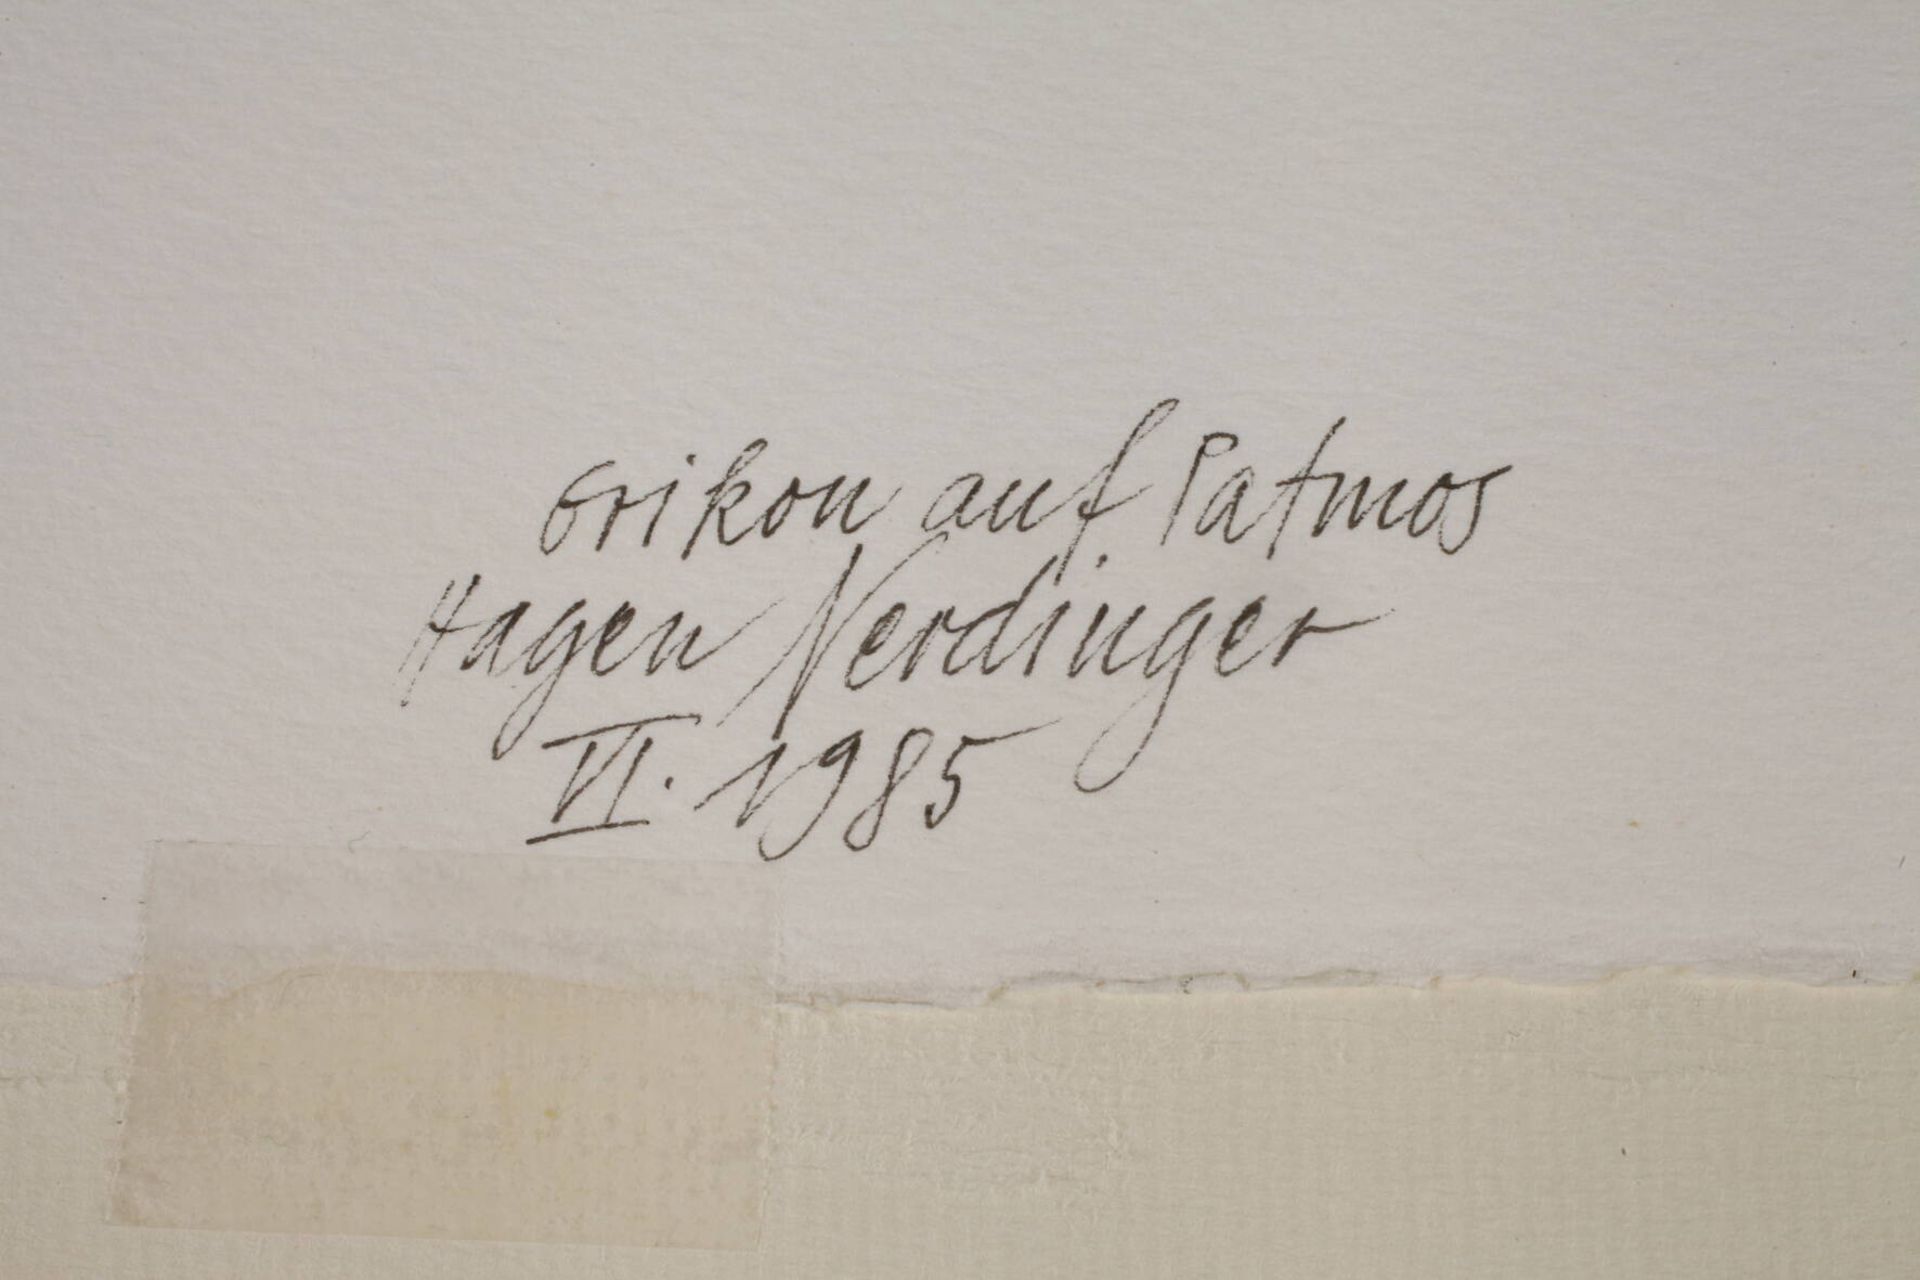 Grikon auf Patmos
Hagen Nerdinger
VI. 1985